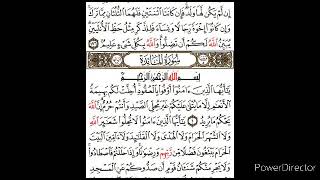 إِن لَّمْ يَكُن لَّهَا وَلَدٌ فَإِن كَانَتَا ٱثْنَتَيْنِ فَلَهُمَا ٱلثُّلُثَانِ مِمَّا تَرَكَ
وَإِن كَانُوٓا۟ إِخْوَةً رِّجَالًا وَنِسَآءً فَلِلذَّكَرِ مِثْلُ حَظِّ ٱلْأُنثَيَيْنِ
يُبَيِّنُ ٱللَّهُ لَكُمْ أَن تَضِلُّوا۟ وَٱللَّهُ بِكُلِّ شَىْءٍ عَلِيمٌۢ
سُورَةُ المَائِدَةِ
بِسْمِ ٱللَّهِ ٱلرَّحْمَٰنِ ٱلرَّحِيمِ
يَٰٓأَيُّهَا ٱلَّذِينَ ءَامَنُوٓا۟ أَوْفُوا۟ بِٱلْعُقُودِ أُحِلَّتْ لَكُم بَهِيمَةُ
ٱلْأَنْعَٰمِ إِلَّا مَا يُتْلَىٰ عَلَيْكُمْ غَيْرَ مُحِلِّى ٱلصَّيْدِ وَأَنتُمْ حُرُمٌ إِنَّ ٱللَّهَ
يَحْكُمُ مَا يُرِيدُ يَٰٓأَيُّهَا ٱلَّذِينَ ءَامَنُوا۟ لَا تُحِلُّوا۟ شَعَٰٓئِرَ ٱللَّهِ
وَلَا ٱلشَّهْرَ ٱلْحَرَامَ وَلَا ٱلْهَدْىَ وَلَا ٱلْقَلَٰٓئِدَ وَلَآ ءَآمِّينَ
ٱلْبَيْتَ ٱلْحَرَامَ يَبْتَغُونَ فَضْلًا مِّن رَّبِّهِمْ وَرِضْوَٰنًا وَإِذَا حَلَلْتُمْ فَٱصْطَادُوا۟
وَلَا يَجْرِمَنَّكُمْ شَنَـَٔانُ قَوْمٍ أَن صَدُّوكُمْ عَنِ ٱلْمَسْجِدِ
PowerDirector